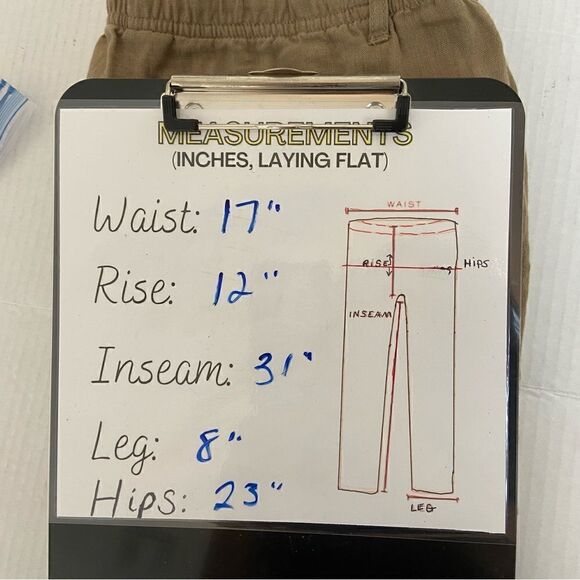 MEASUREMENTS
(INCHES, LAYING FLAT)
Waist: 17"
Rise: 12"
Inseam: 31"
Leg: 8"
Hips: 23"
WAIST
RISE
HIPS
INSEAM
LEG